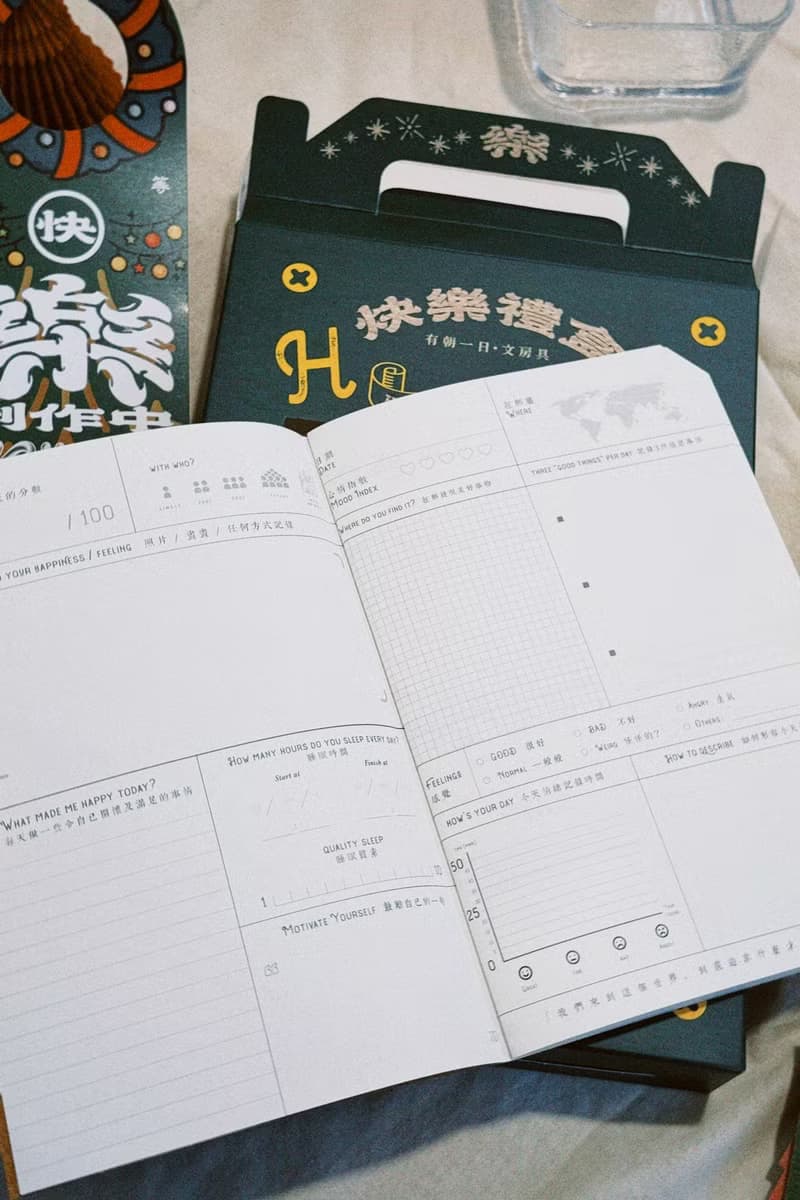 樂
快樂禮盒
有朝一日·文房具
H
等
快
樂
創作中
的分數
/ 100
WITH WHO?
YOUR HAPPINESS / FEELING 照片 / 畫畫 / 任何方式記錄
WHAT MADE ME HAPPY TODAY?
每天做一些令自己開懷及滿足的事情
HOW MANY HOURS DO YOU SLEEP EVERY DAY?
睡眠時間
Start at
Finish at
QUALITY SLEEP
睡眠質素
1
10
MOTIVATE YOURSELF 鼓勵自己的一句
日期
DATE
在那裏
WHERE
心情指數
MOOD INDEX
WHERE DO YOU FIND IT? 在那裡找到好事物
THREE "GOOD THINGS" PER DAY
FEELINGS
感覺
GOOD 很好
BAD 不好
ANGRY 生氣
NORMAL 一般般
WEIRD 怪怪的?
OTHERS
HOW'S YOUR DAY 今天情緒記錄時間
HOW TO DESCRIBE 如何形容今天
50
25
0
GREAT
「我們來到這個世界,到底追求什麼才